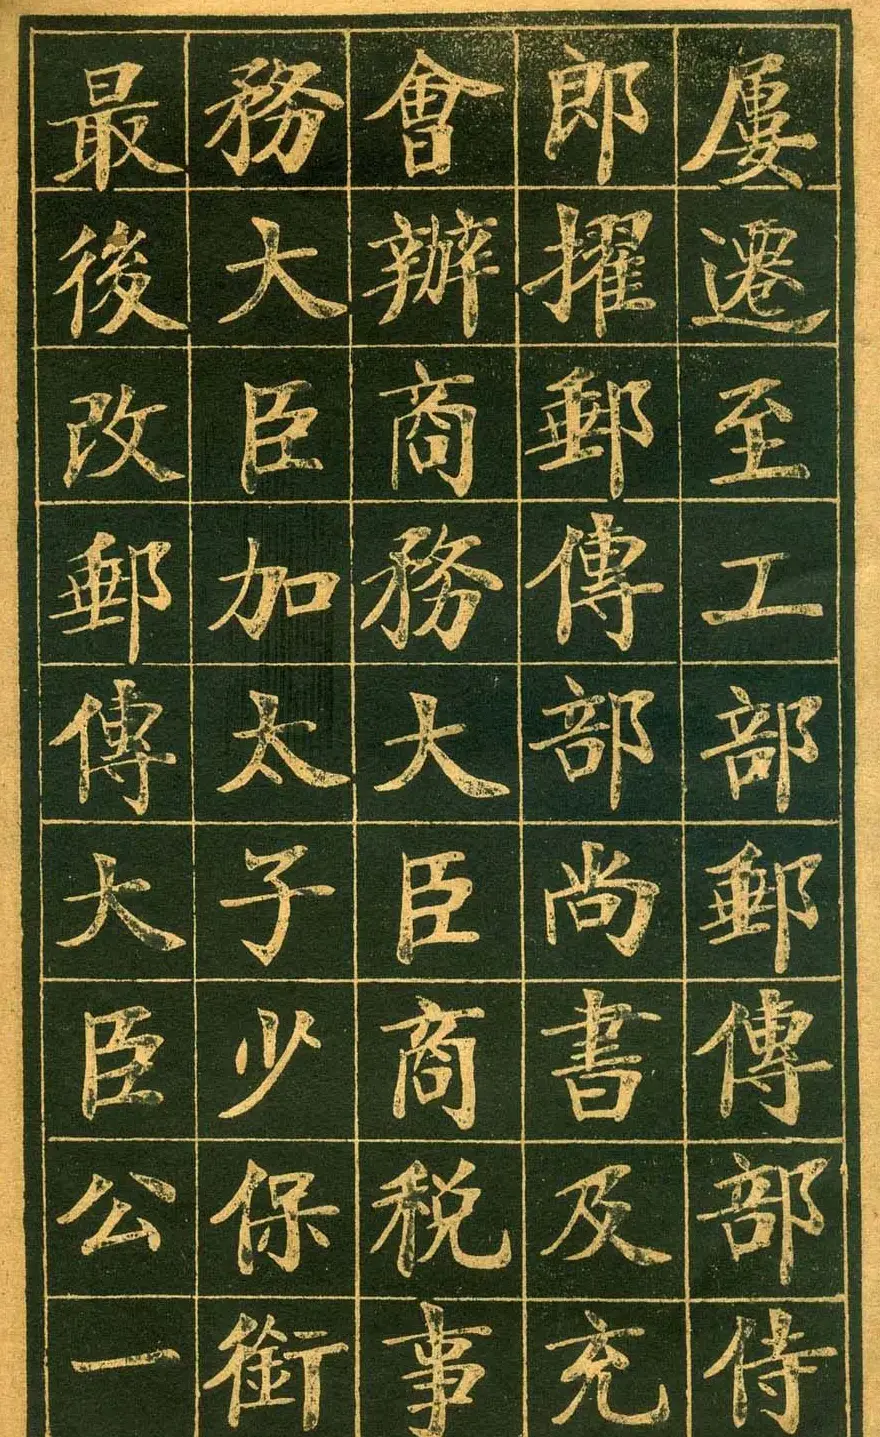 屢遷至工部郵傳部侍
郎擢郵傳部尚書及充
會辦商務大臣商税事
務大臣加太子少保銜
最後改郵傳大臣公一